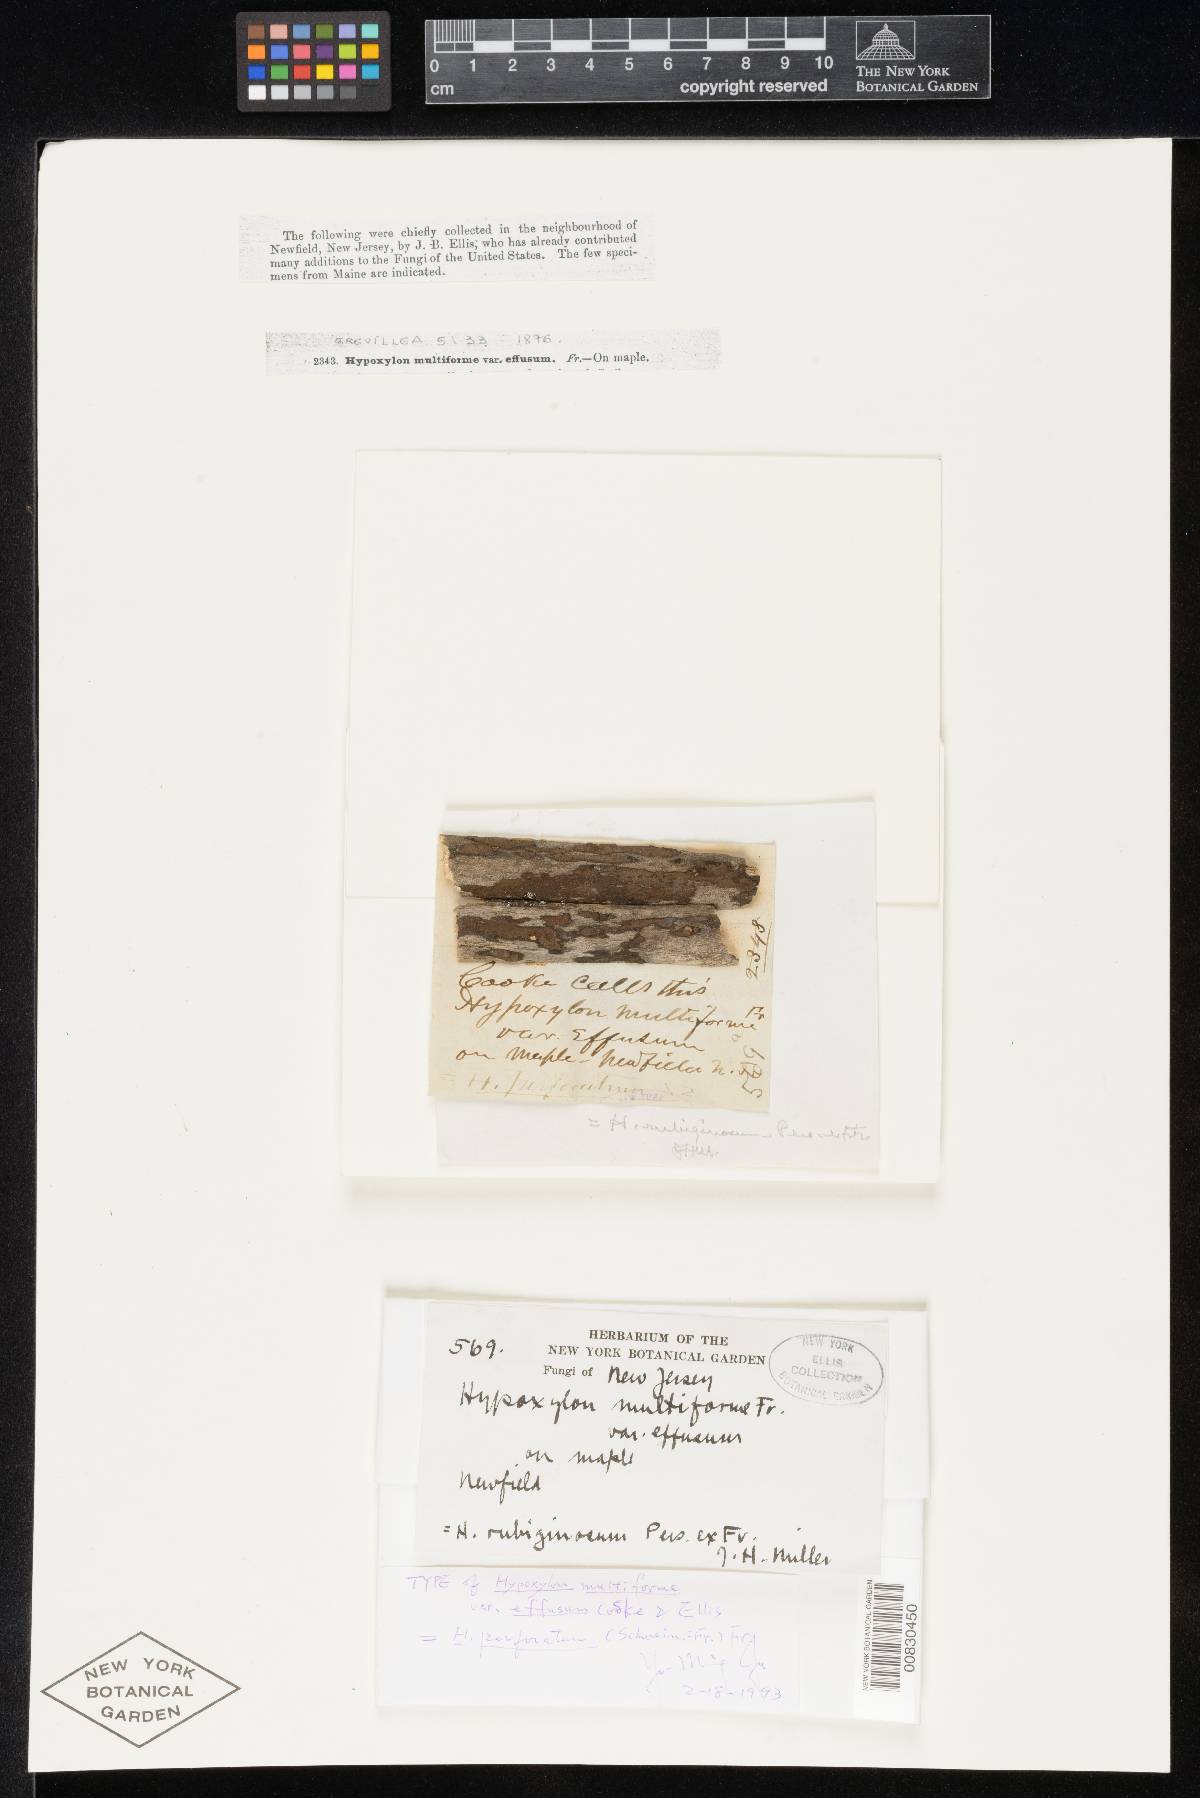 0 1 2 3 4 5 6 7 8 9 10
cm
copyright reserved
THE NEW YORK
BOTANICAL GARDEN
The following were chiefly collected in the neighbourhood of
Newfield, New Jersey, by J. B. Ellis, who has already contributed
many additions to the Fungi of the United States. The few speci-
mens from Maine are indicated.
GREVILLEA 5: 33 - 1876.
2343. Hypoxylon multiforme var. effusum. Fr.—On maple.
Cooke calls this
Hypoxylon multiforme Fr
var. effusum
on Maple - Newfield N. J.
= H. perforatum
= H. rubiginosum Pers ex Fr.
JHM.
569.
HERBARIUM OF THE
NEW YORK BOTANICAL GARDEN
Fungi of New Jersey
NEW YORK
ELLIS
COLLECTION
BOTANICAL GARDEN
Hypoxylon multiforme Fr.
var. effusum
on maple
Newfield
= H. rubiginosum Pers. ex Fr.
J. H. Miller
TYPE of Hypoxylon multiforme
var. effusum Cooke & Ellis
= H. perforatum (Schwein.: Fr.) Fr.
Yu-Ming Ju
2-18-1993
NEW YORK BOTANICAL GARDEN
00830450
NEW YORK
BOTANICAL
GARDEN